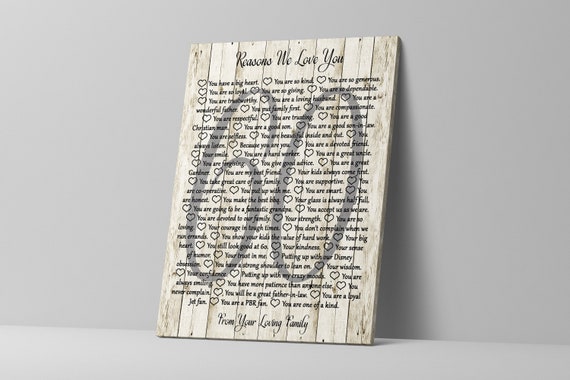 Reasons We Love You
You have a big heart. You are so kind. You are so generous.
You are so loyal. You are so giving. You are so dependable.
You are trustworthy. You are a loving husband. You are a
wonderful father. You put family first. You are compassionate.
You are respectful. You are trusting. You are a good
Christian man. You are a good son. You are a good son-in-law.
You are selfless. You are beautiful inside and out. You are
always listen. Because you are you. You are a devoted friend.
Your smile. You are a hard worker. You are a great uncle.
You are forgiving. You give good advice. You are a great
Gardner. You are my best friend. Your kids always come first.
You take great care of our family. You are supportive. You
are co-operative. You put up with me. You are smart. You are
honest. You make the best bbq. Your glass is always half full.
You are going to be a fantastic grandpa. You accept us as we are.
You are devoted to our family. Your strength. You are so
loving. Your courage in tough times. You don't complain when we
run errands. You show your kids the value of hard work. Your big
heart. You still look great at 60. Your kindness. Your sense
of humor. Your trust in me. Putting up with our Disney
obsession. You have a strong shoulder to lean on. Your wisdom.
Your confidence. Putting up with my crazy moods. You are
always smiling. You have more patience than anyone else. You
never complain. You will be a great father-in-law. You are a loyal
Jet fan. You are a PBR fan. You are one of a kind.
From Your Loving Family
60